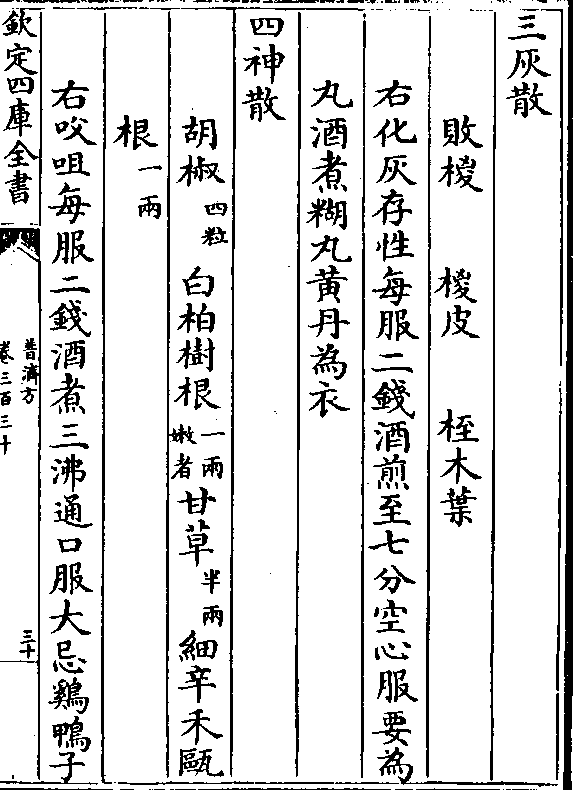 三灰散
敗椶 椶皮 桎木葉
右化灰存性每服二錢酒煎至七分空心服要為
丸酒煮糊丸黄丹為衣
四神散
胡椒四粒 白柏樹根一兩嫩者 甘草半兩 細辛禾甌
根一兩
右咬咀每服二錢酒煮三沸通口服大忌鷄鴨子
欽定四庫全書
普濟方
卷三百三十
三十